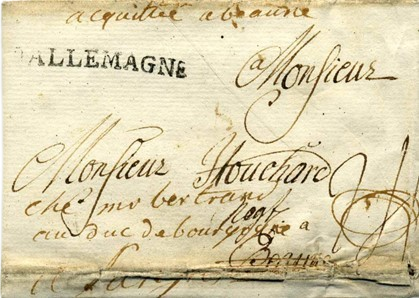 acquittée a beaune
ALLEMAGNE
a Monsieur
Monsieur Houchard
ches mr bertrand
negt
au duc de bourgogne a
Beaune
a